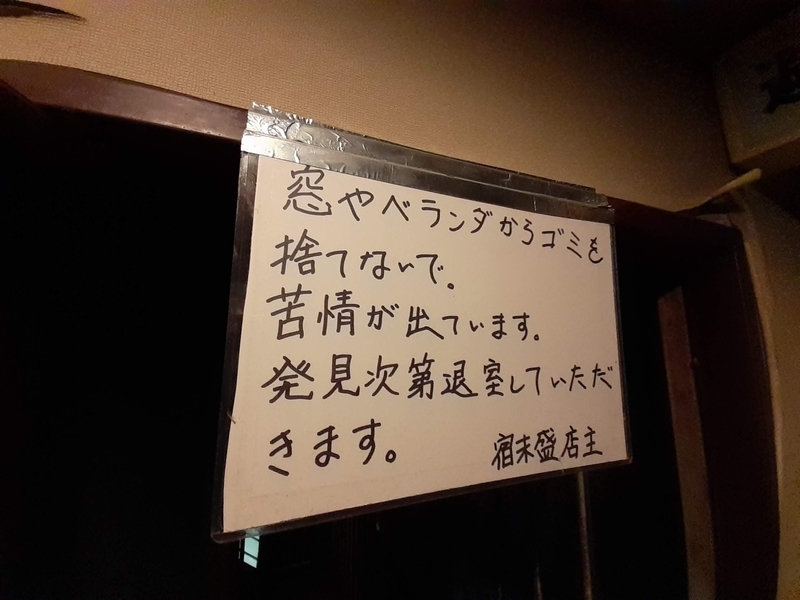 窓やベランダからゴミを
捨てないで。
苦情が出ています。
発見次第退室していただ
きます。
宿末盛店主